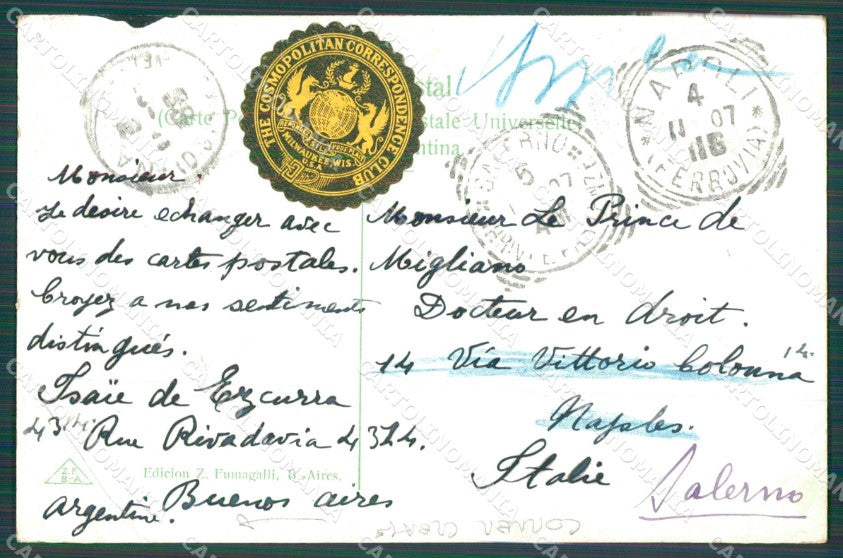 THE COSMOPOLITAN CORRESPONDENCE CLUB
MILWAUKEE, WIS.
U.S.A.
stal
(Carte Po
stale Universelle)
entina
NAPOLI
4
11 07
11S
(FERROVIA)
SALERNO
5
07
Monsieur.
Je desire echanger avec
vous des cartes postales.
Croyez a nos sentiments
distingués.
Isaïe de Ezcurra
4314. Rue Rivadavia 4314.
Buenos aires
Argentine.
Monsieur Le Prince de
Migliano
Docteur en droit.
14 Vía Vittorio Colonna 14.
Naples.
Italie
Salerno
Z.F.
B-A
Edicion Z. Fumagalli, B. Aires.
CORNER CREASE
CARTOLINOMANIA